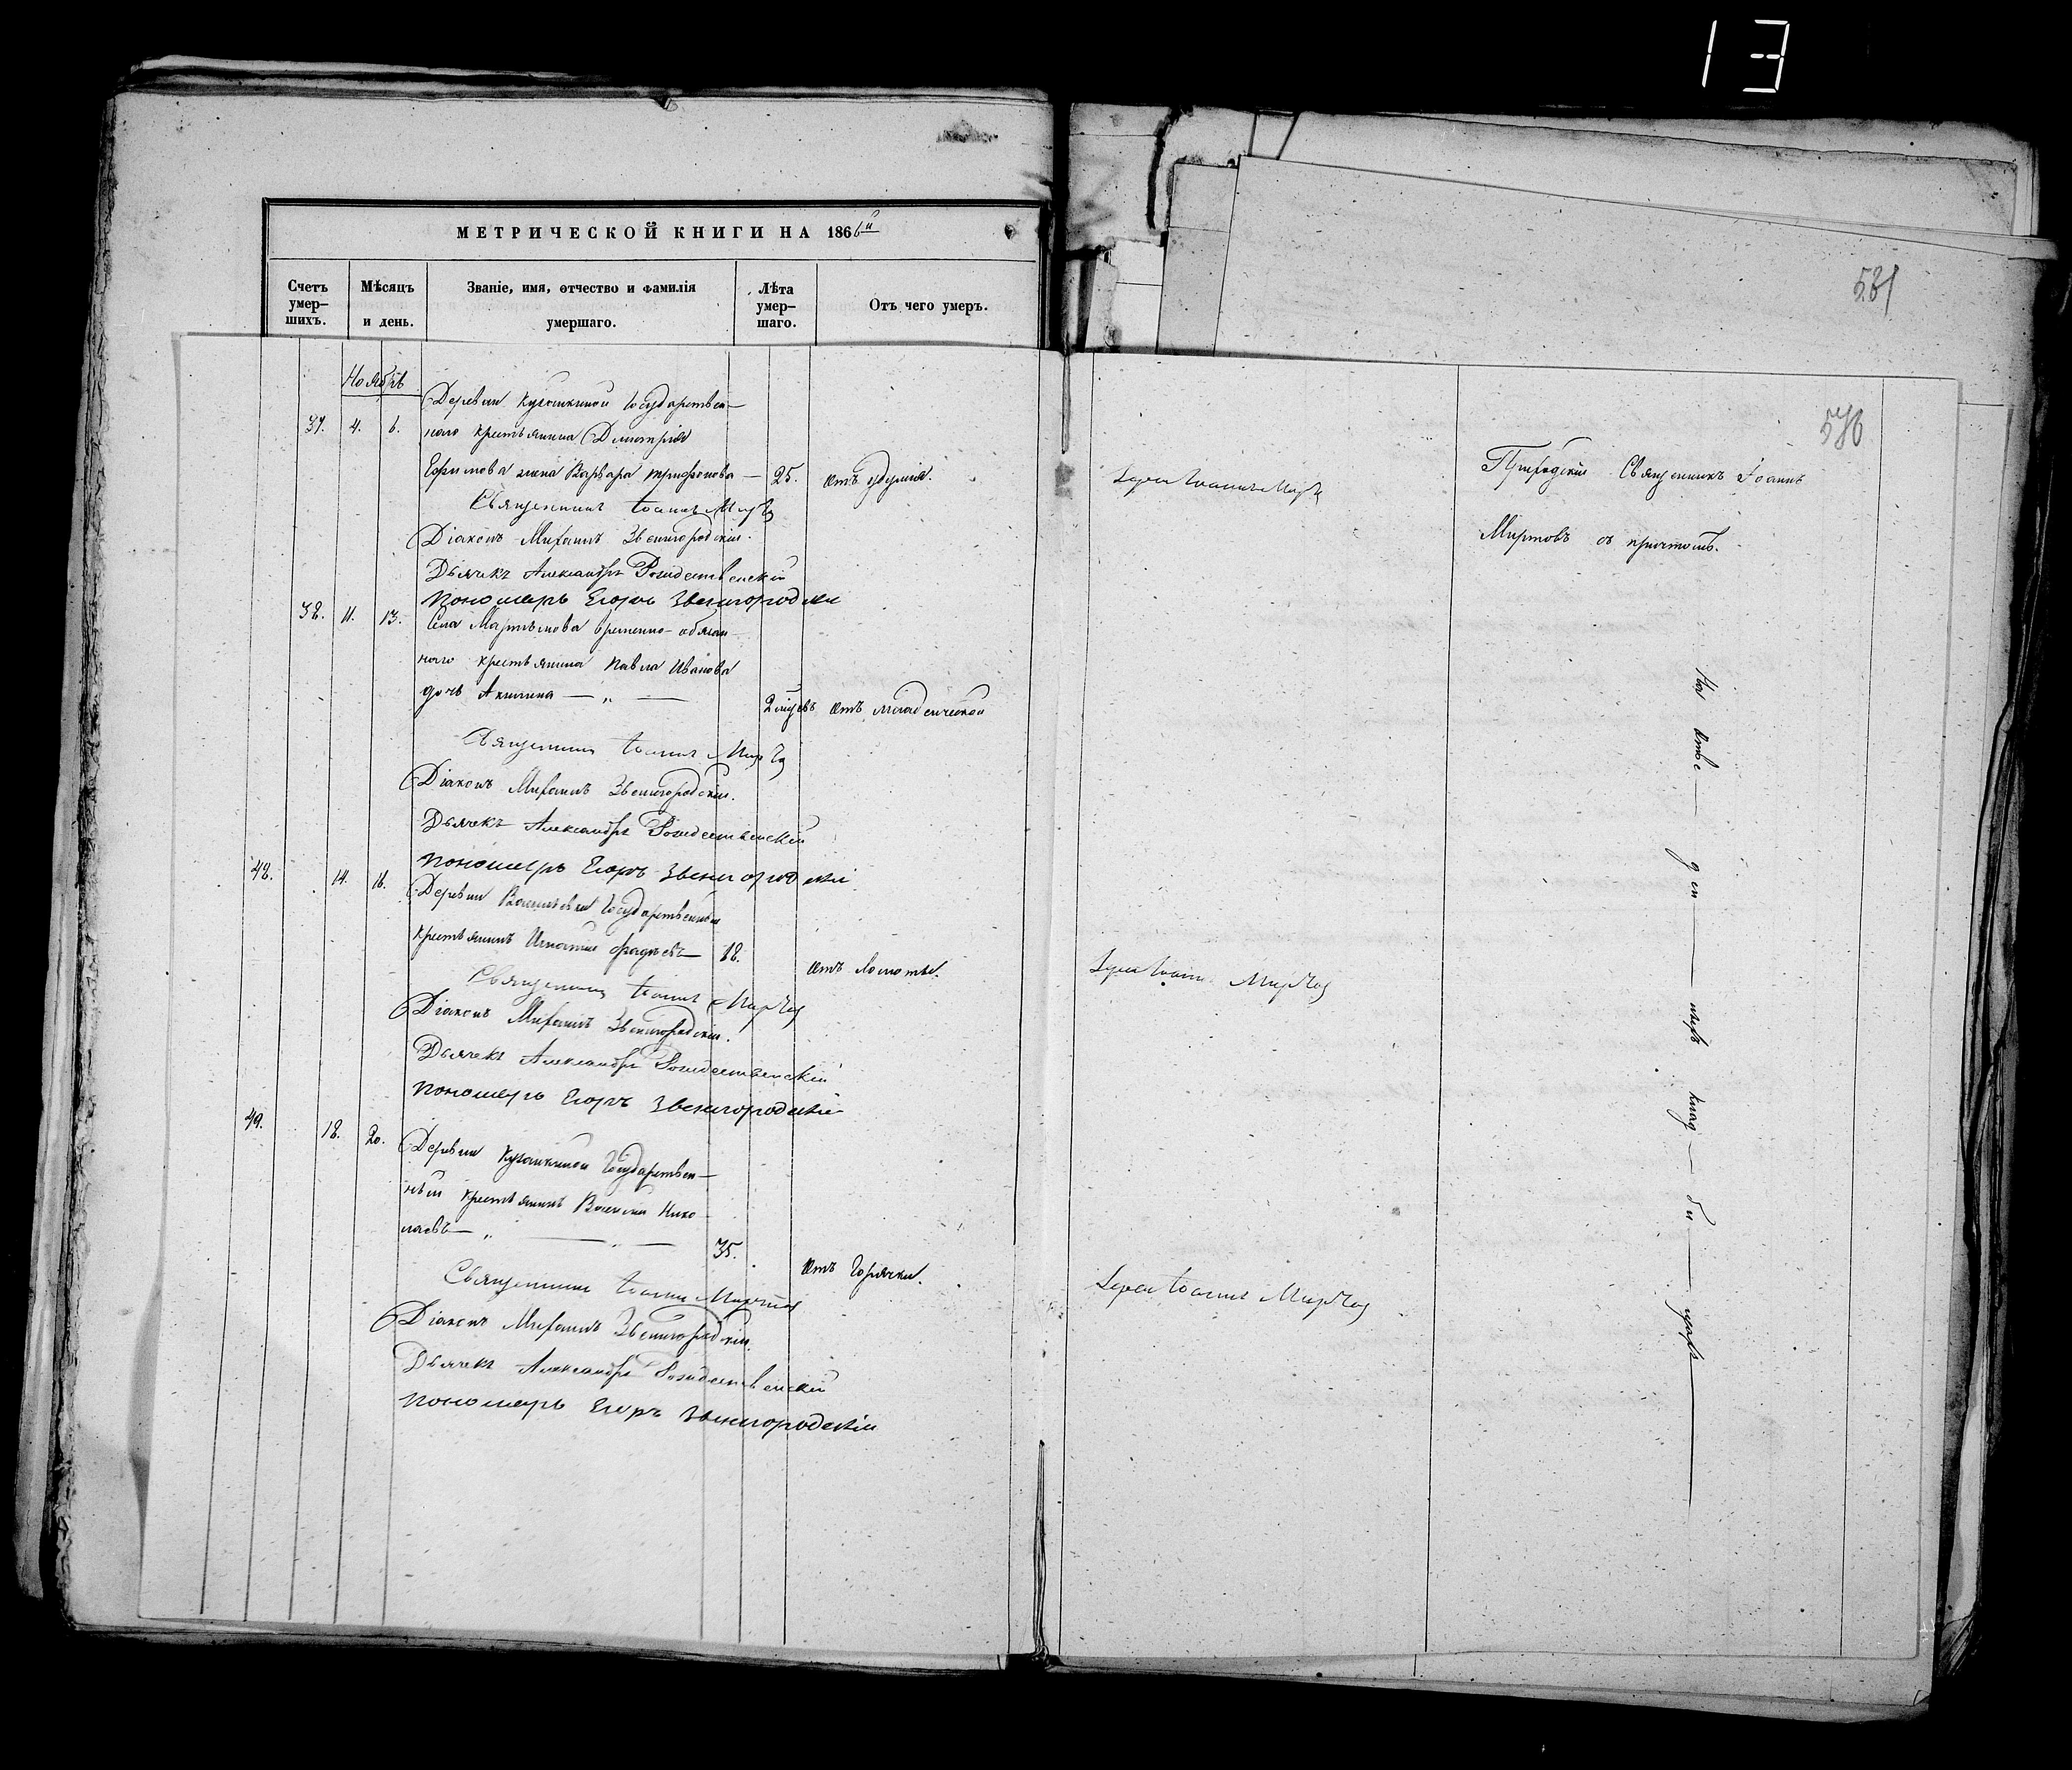 13
МЕТРИЧЕСКОЙ КНИГИ НА 1866й
Счетъ умер-шихъ.
Мѣсяцъ и день.
Званіе, имя, отчество и фамилія умершаго.
Лѣта умер-шаго.
Отъ чего умеръ.
581
Ноябрь
Деревни Государствен-
37. 4. 6. наго крестьянина Димитрія
Ефимова жена Варвара Трифонова — 25. отъ удушія.
Священникъ Іоаннъ Миртовъ
Діаконъ Михаилъ Звенигородскій.
Дьячекъ Александръ Рождественскій
Пономарь Егоръ Звенигородскій
38. 11. 13. Села Мартьмова временно-обязан-
наго крестьянина Павла Иванова
дочь Акилина — „ — 2 мѣсяцевъ отъ младенческой
Священникъ Іоаннъ Миртовъ
Діаконъ Михаилъ Звенигородскій.
Дьячекъ Александръ Рождественскій
Пономарь Егоръ Звенигородскій
48. 14. 16. Деревни Государственный
крестьянинъ Игнатій Фадѣевъ — 18. отъ ломоты.
Священникъ Іоаннъ Миртовъ
Діаконъ Михаилъ Звенигородскій.
Дьячекъ Александръ Рождественскій
Пономарь Егоръ Звенигородскій
49. 18. 20. Деревни Государствен-
ный крестьянинъ Василій Нико-
лаевъ — „ — „ — 35. отъ горячки.
Священникъ Іоаннъ Миртовъ
Діаконъ Михаилъ Звенигородскій.
Дьячекъ Александръ Рождественскій
Пономарь Егоръ Звенигородскій
576
Іерей Іоаннъ Миртовъ
Приходскій Священникъ Іоаннъ
Миртовъ съ причтомъ.
Іерей Іоаннъ Миртовъ
Іерей Іоаннъ Миртовъ
На отве — ден — номъ клад — би — щѣ